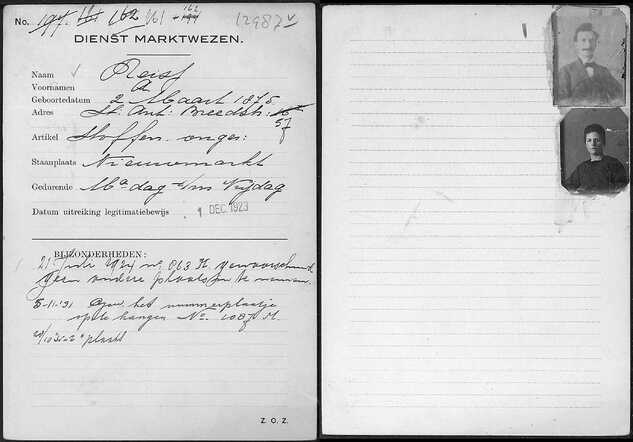 No. 197. 181 162 161 162
12987 v
DIENST MARKTWEZEN.
Naam Reist
Voornamen A
Geboortedatum 2 Maart 1875.
Adres St. Ant: Breedstr: 16
57
Artikel Stoffen. onger:
Staanplaats Nieuwmarkt
Gedurende Ma dag t/m Vrijdag
Datum uitreiking legitimatiebewijs 1 DEC. 1923
BIJZONDERHEDEN:
21 Juli 1924 no. 063 K gewaarschuwd
geen andere plaats in te nemen.
5-11-'31 Gew. het nummerplaatje
op te hangen No. 1087 M.
plaats
Z. O. Z.